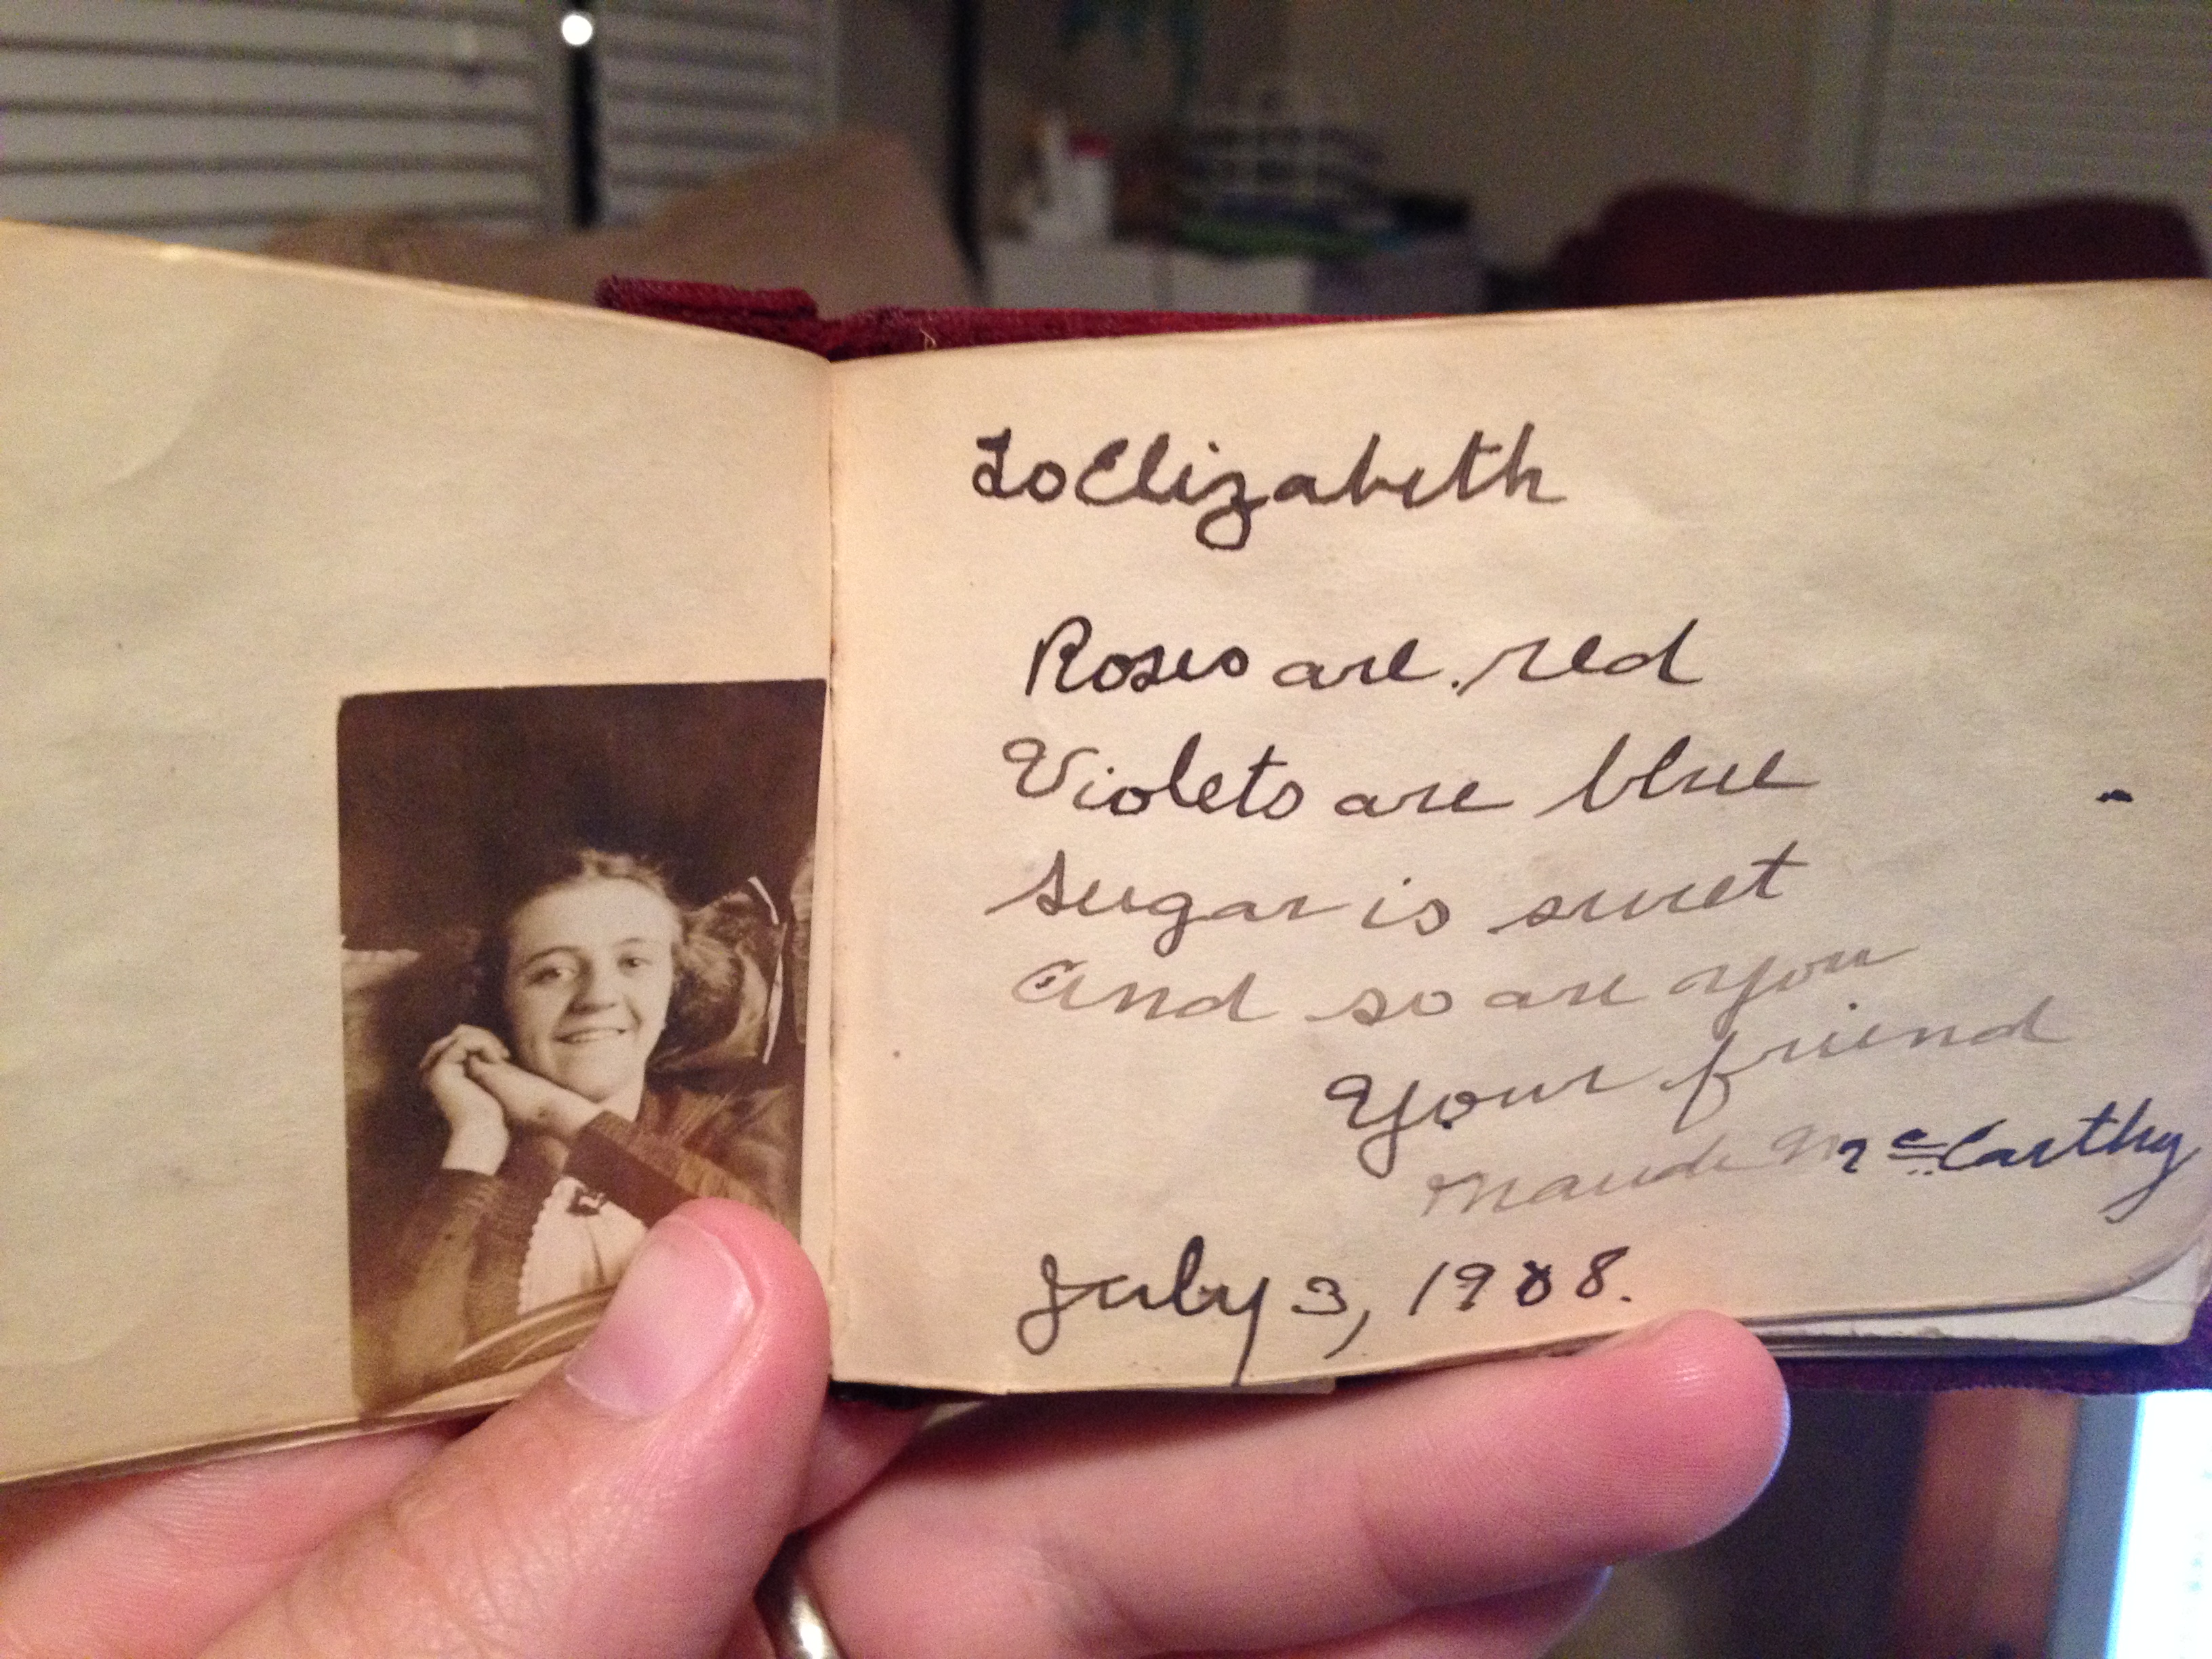 To Elizabeth
Roses are red
Violets are blue
Sugar is sweet
And so are you
Your friend
Maude McCarthy
July 3, 1908.